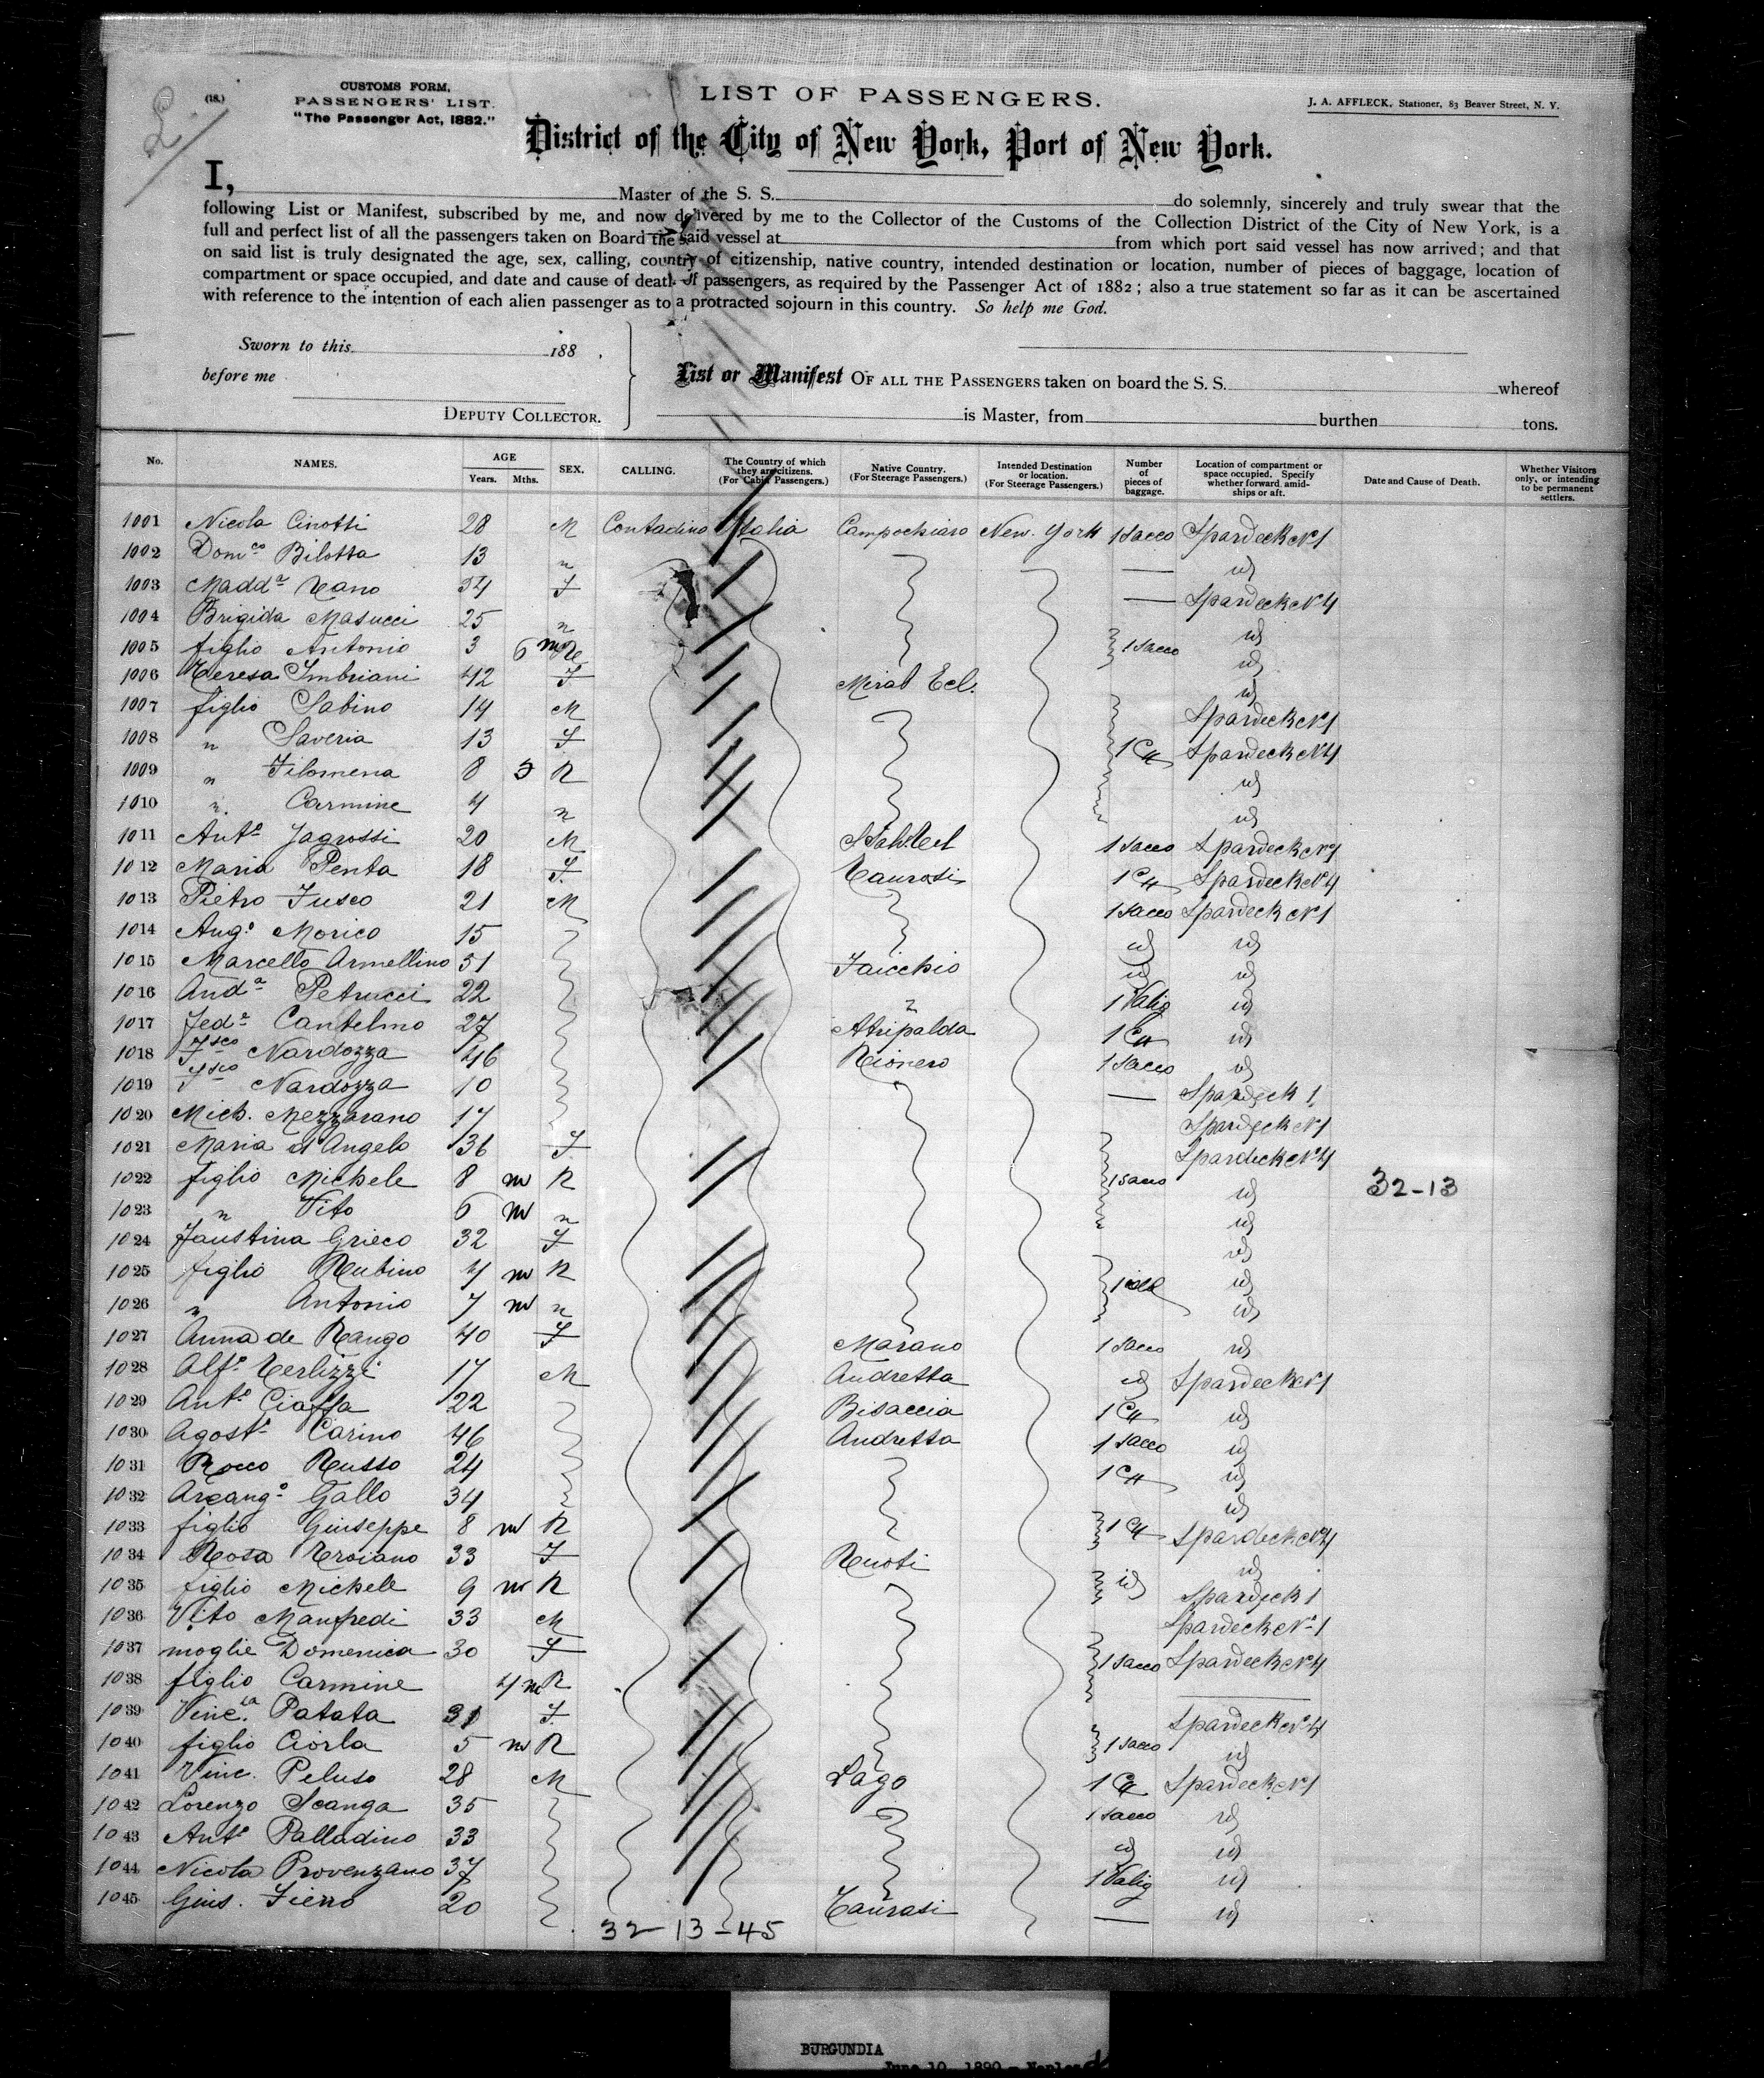 (18.)
CUSTOMS FORM,
PASSENGERS' LIST.
"The Passenger Act, 1882."
LIST OF PASSENGERS.
J. A. AFFLECK, Stationer, 83 Beaver Street, N. Y.
District of the City of New York, Port of New York.
I, Master of the S. S. do solemnly, sincerely and truly swear that the
following List or Manifest, subscribed by me, and now delivered by me to the Collector of the Customs of the Collection District of the City of New York, is a
full and perfect list of all the passengers taken on Board the said vessel at from which port said vessel has now arrived; and that
on said list is truly designated the age, sex, calling, country of citizenship, native country, intended destination or location, number of pieces of baggage, location of
compartment or space occupied, and date and cause of death of passengers, as required by the Passenger Act of 1882; also a true statement so far as it can be ascertained
with reference to the intention of each alien passenger as to a protracted sojourn in this country. So help me God.
Sworn to this 188 .
before me
DEPUTY COLLECTOR.
List or Manifest OF ALL THE PASSENGERS taken on board the S. S. whereof
is Master, from burthen tons.
No. NAMES. AGE Years. Mths. SEX. CALLING. The Country of which they are citizens. (For Cabin Passengers.) Native Country. (For Steerage Passengers.) Intended Destination or location. (For Steerage Passengers.) Number of pieces of baggage. Location of compartment or space occupied. Specify whether forward, amidships or aft. Date and Cause of Death. Whether Visitors only, or intending to be permanent settlers.
1001 Nicola Cinotti 28 M Contadino Italia Campochiaro New. York 1 Sacco Spardeck N1
1002 Dom.co Bilotta 13 " — id
1003 Madd.a 34 F — Spardeck N4
1004 Brigida Masucci 25 " id
1005 figlio Antonio 3 6 m 1 Sacco id
1006 Teresa Imbriani 42 F Mirab Ecl. id
1007 figlio Sabino 14 M Spardeck N1
1008 " Saveria 13 F 1 Spardeck N4
1009 " Filomena 8 R id
1010 " Carmine 4 " id
1011 Ant.o Jagrossi 20 M 1 Sacco Spardeck N1
1012 Maria Penta 18 F Taurasi 1 Spardeck N4
1013 Pietro Fusco 21 M 1 Sacco Spardeck N1
1014 Aug.o Morico 15 id id
1015 Marcello Armellino 31 Faicchio id id
1016 And.a Petrucci 22 " 1 Valig id
1017 Fed.a Cantelmo 27 Atripalda 1 id
1018 F.sco Nardozza 46 Rionero 1 Sacco id
1019 F.sco Nardozza 10 — Spardeck 1
1020 Mich. Mezzarano 17 Spardeck N1
1021 Maria d'Angelo 36 F Spardeck N4
1022 figlio Michele 8 m R 1 Sacco id 32-13
1023 " Vito 6 m " id
1024 Faustina Grieco 32 F id
1025 figlio Rubino 4 m R id
1026 " Antonio 7 m " id
1027 Anna de Rango 40 F Marano 1 Sacco id
1028 Alf.o Terlizzi 17 M Andretta id Spardeck N1
1029 Ant.o Ciaffa 22 Bisaccia 1 id
1030 Agost.o Carino 46 Andretta 1 Sacco id
1031 Rocco Russo 24 1 id
1032 Arcang.o Gallo 34 id
1033 figlio Giuseppe 8 m R 1 Spardeck N4
1034 Rosa Troiano 33 F Ruoti id
1035 figlio Michele 9 m R id Spardeck 1
1036 Vito Manfredi 33 M Spardeck N.1
1037 moglie Domenica 30 F 1 Sacco Spardeck N4
1038 figlio Carmine 4 m R
1039 Vinc.za Patata 31 F Spardeck N4
1040 figlio Ciorla 5 m R 1 Sacco id
1041 Vinc. Peluso 28 M Lago 1 Spardeck N1
1042 Lorenzo Scanga 35 1 Sacco id
1043 Ant.o Palladino 33 id id
1044 Nicola Provenzano 37 1 Valig id
1045 Gius. Fierro 20 Taurasi — id
32-13-45
BURGUNDIA
June 10, 1890 - Naples